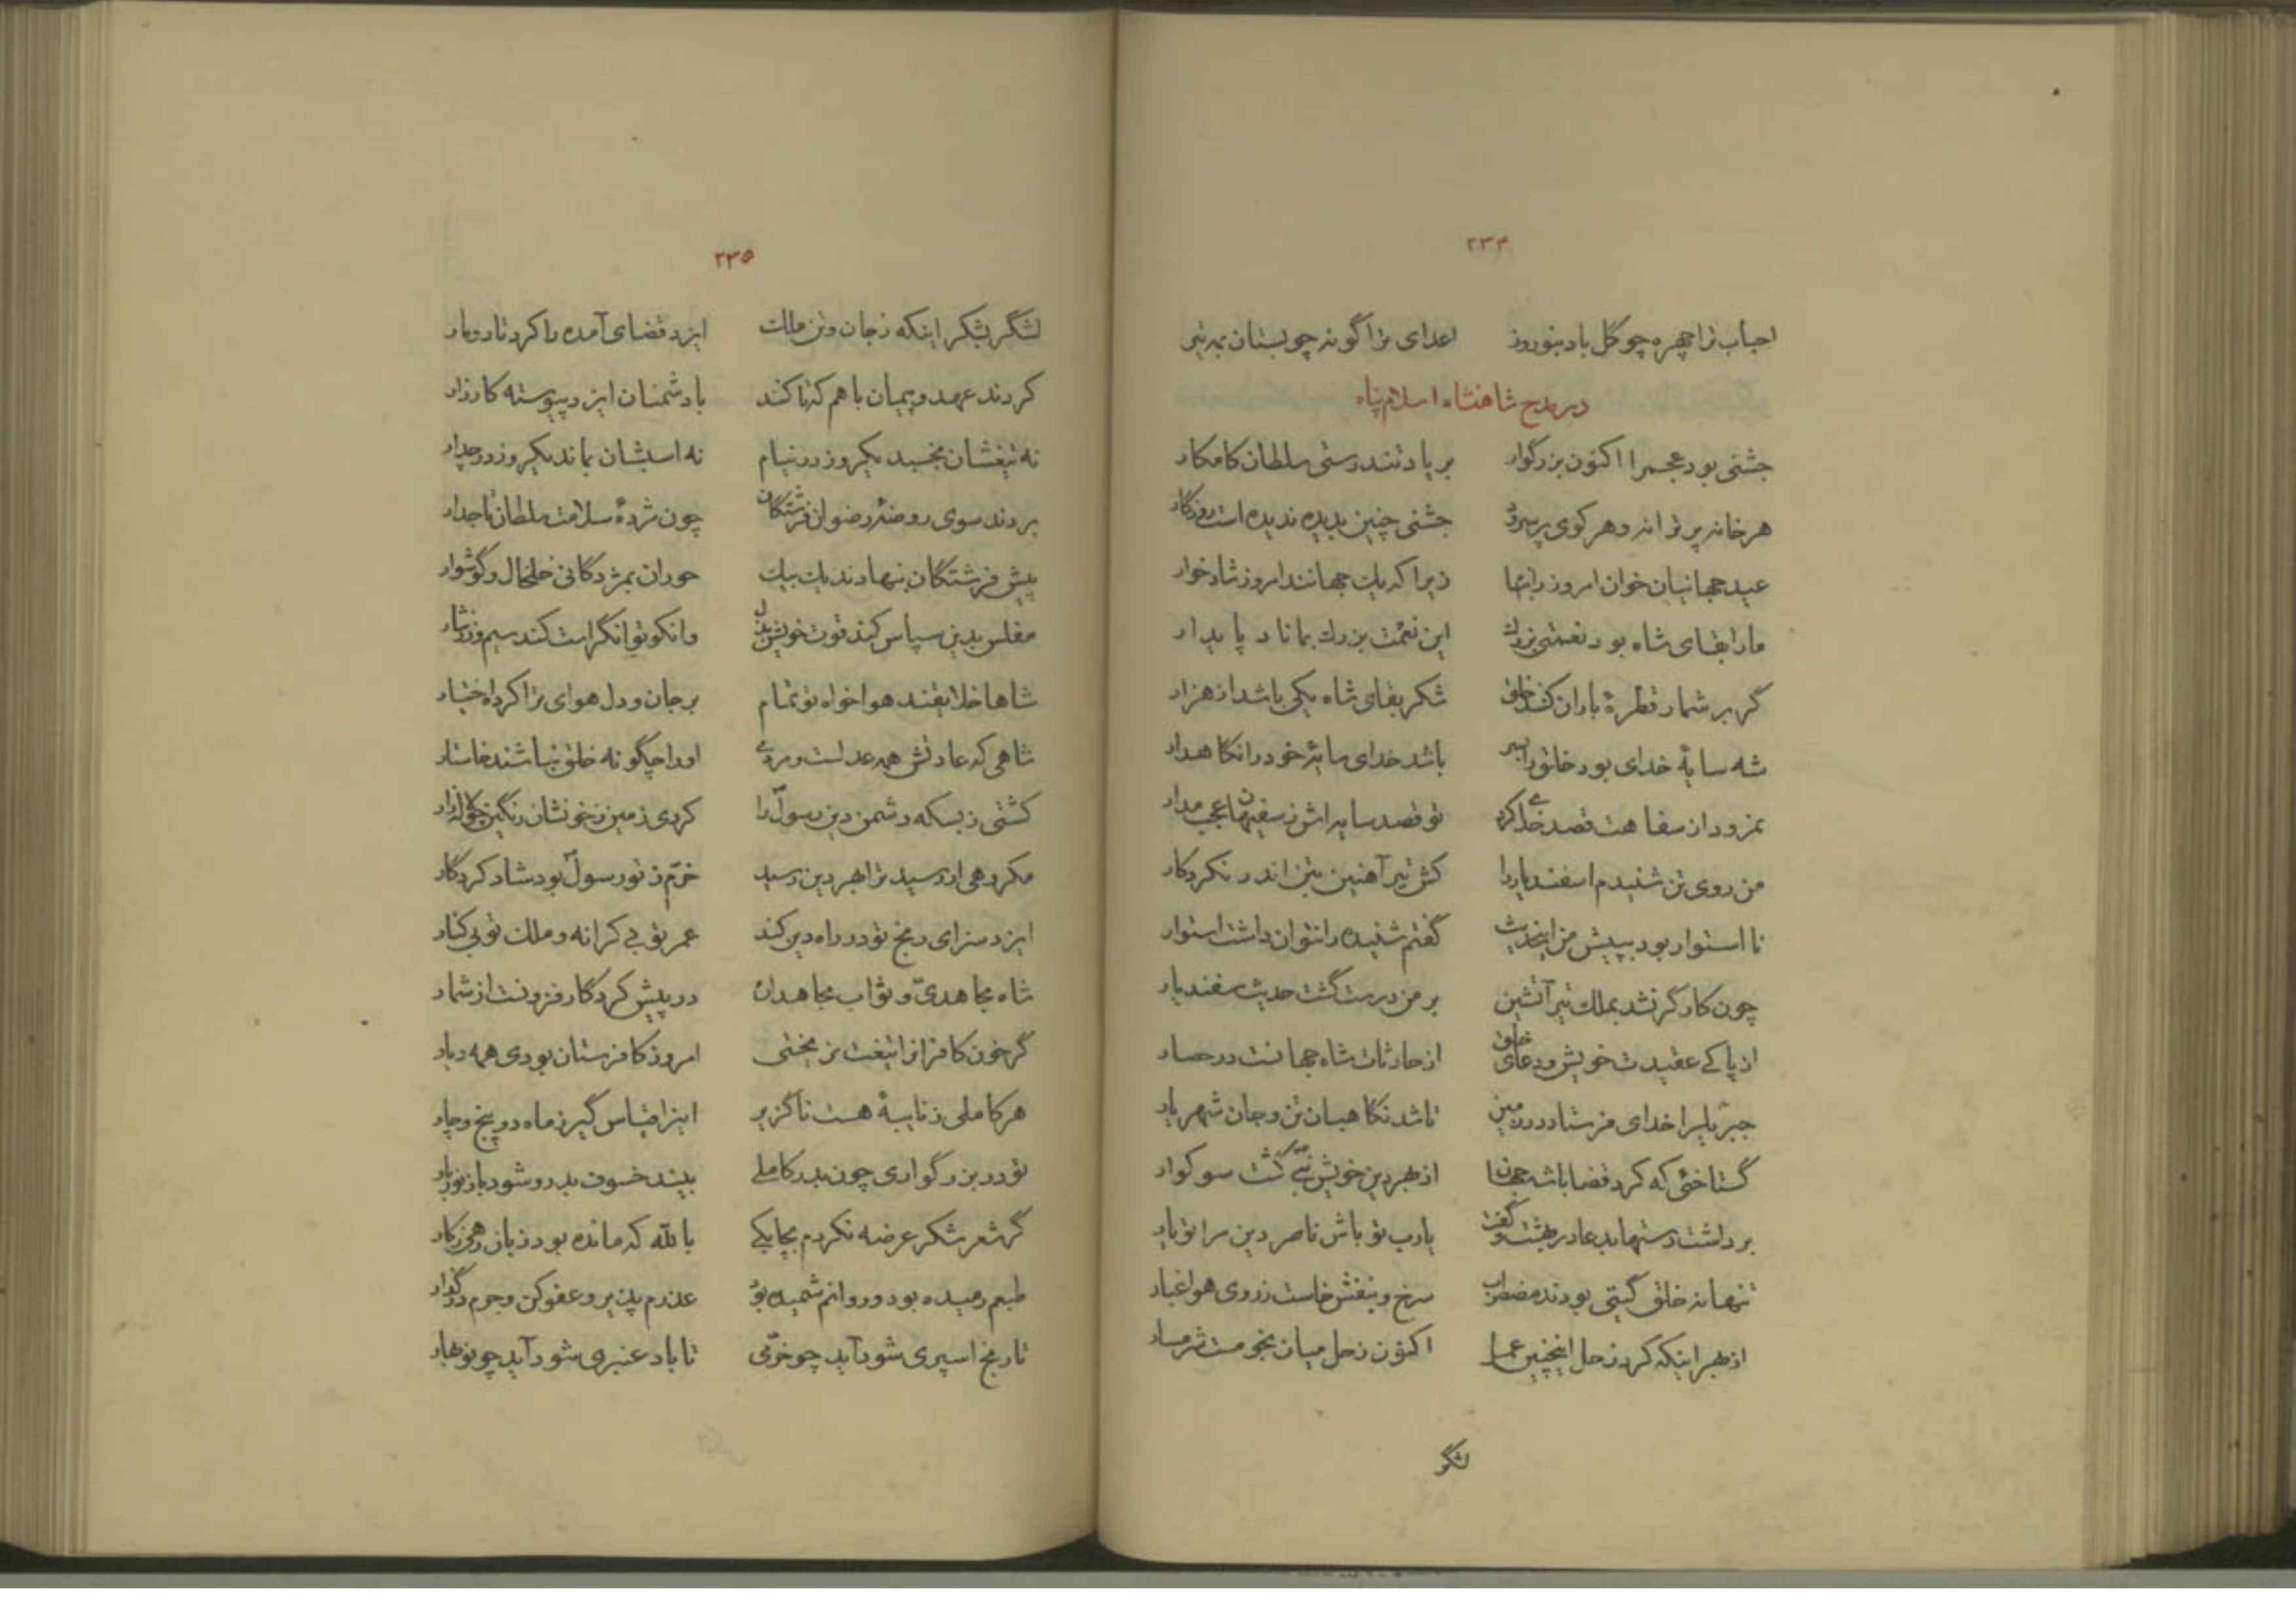 ۲۳۴
احباب ترا چهره چو گل باد بنوروز اعدای ترا گونه چو بستان بمه تیر
در مدح شاهنشاه اسلام پناه
جشنی بود عجم را اکنون بزرگوار بر یاد تندرستی سلطان کامکار
هر خانه پر ترانه و هر کوی پر سرود جشنی چنین بدیده ندیده است روزگار
عید جهانیان خوان امروز را بتها زیرا که یک جهانند امروز شادخوار
ما را بقای شاه بود نعمتی بزرگ این نعمت بزرگ بماناد پایدار
گر بر شمار قطرهٔ باران کنند خلق شکر بقای شاه یکی باشد از هزار
شه سایهٔ خدای بود خلق را بسر باشد خدای سایهٔ خود را نگاهدار
نمرود از سفاهت قصد خدای کرد تو قصد سایه‌اش ز سفیهان عجب مدار
من روی تن شنیدم اسفندیار را کش تیر آهنین بتن اندر نکرد کار
نااستوار بود بپیش من اینحدیث گفتم شنیده را نتوان داشت استوار
چون کارگر نشد بملک تیر آتشین بر من درست گشت حدیث سفندیار
از پاکی عقیدت خویش و دعای خلق از حادثات شاه جهانست در حصار
جبریل را خدای فرستاد در زمین تا شد نگاهبان تن و جان شهریار
گستاخئی که کرد قضا با شه جهان از بهر دین خویش نبی گشت سوکوار
برداشت دستها بدعا در بهشت و گفت یارب تو باش ناصر دین مرا تو یار
تنها نه خلق گیتی بودند مضطرب سرخ و بنفش خاست ز روی هوا غبار
از بهر اینکه کرد زحل اینچنین عمل اکنون زحل میان نجومست شرمسار
لشگر
۲۳۵
لشگر بشکر اینکه ز جان و تن ملک ایزد قضای آمده را کرد تار و مار
کردند عهد و پیمان با هم که تا کنند با دشمنان ایزد پیوسته کارزار
نه تیغشان بخسبد یکروز در نیام نه اسبشان بماند یکروز در جدار
بردند سوی روضهٔ رضوان فرشتگان چون مژدهٔ سلامت سلطان تاجدار
پیش فرشتگان بنهادند یک بیک حوران بمژدگانی خلخال و گوشوار
مفلس بدین سپاس کند قوت خویش بذل وانکو توانگر است کند سیم و زر نثار
شاها خلایقند هواخواه تو تمام بر جان و دل هوای ترا کرده اختیار
شاهی که عادتش همه عدلست و مردمی او را چگونه خلق نباشند خاستار
کشتی ز بسکه دشمن دین رسول را کردی زمین ز خونشان رنگین چو لاله‌زار
مکروهی ار رسید ترا بهر دین رسید خرم ز تو رسول بود شاد کردگار
ایزد سزای رنج تو در راه دین کند عمر تو بی کرانه و ملک تو بی کنار
شاه مجاهدی و ثواب مجاهدان در پیش کردگار فزونست از شمار
گر خون کافران را تیغت نریختی امروز کافرستان بودی همه دیار
هر کاملی ز نایبهٔ هست ناگزیر اینرا قیاس گیر ز ماه دو پنج و چار
تو در بزرگواری چون بدر کاملی بیند خسوف بدر و شود باز نوربار
گر شعر شکر عرضه نکردم بجا یکی بالله که مانده بود زبان رهی ز کار
طبعم رمیده بود و روانم شمیده بود عذرم پذیر و عفو کن و جرم درگذار
تا رنج اسپری شود آید چو خرمی تا باد عنبری شود آید چو نوبهار